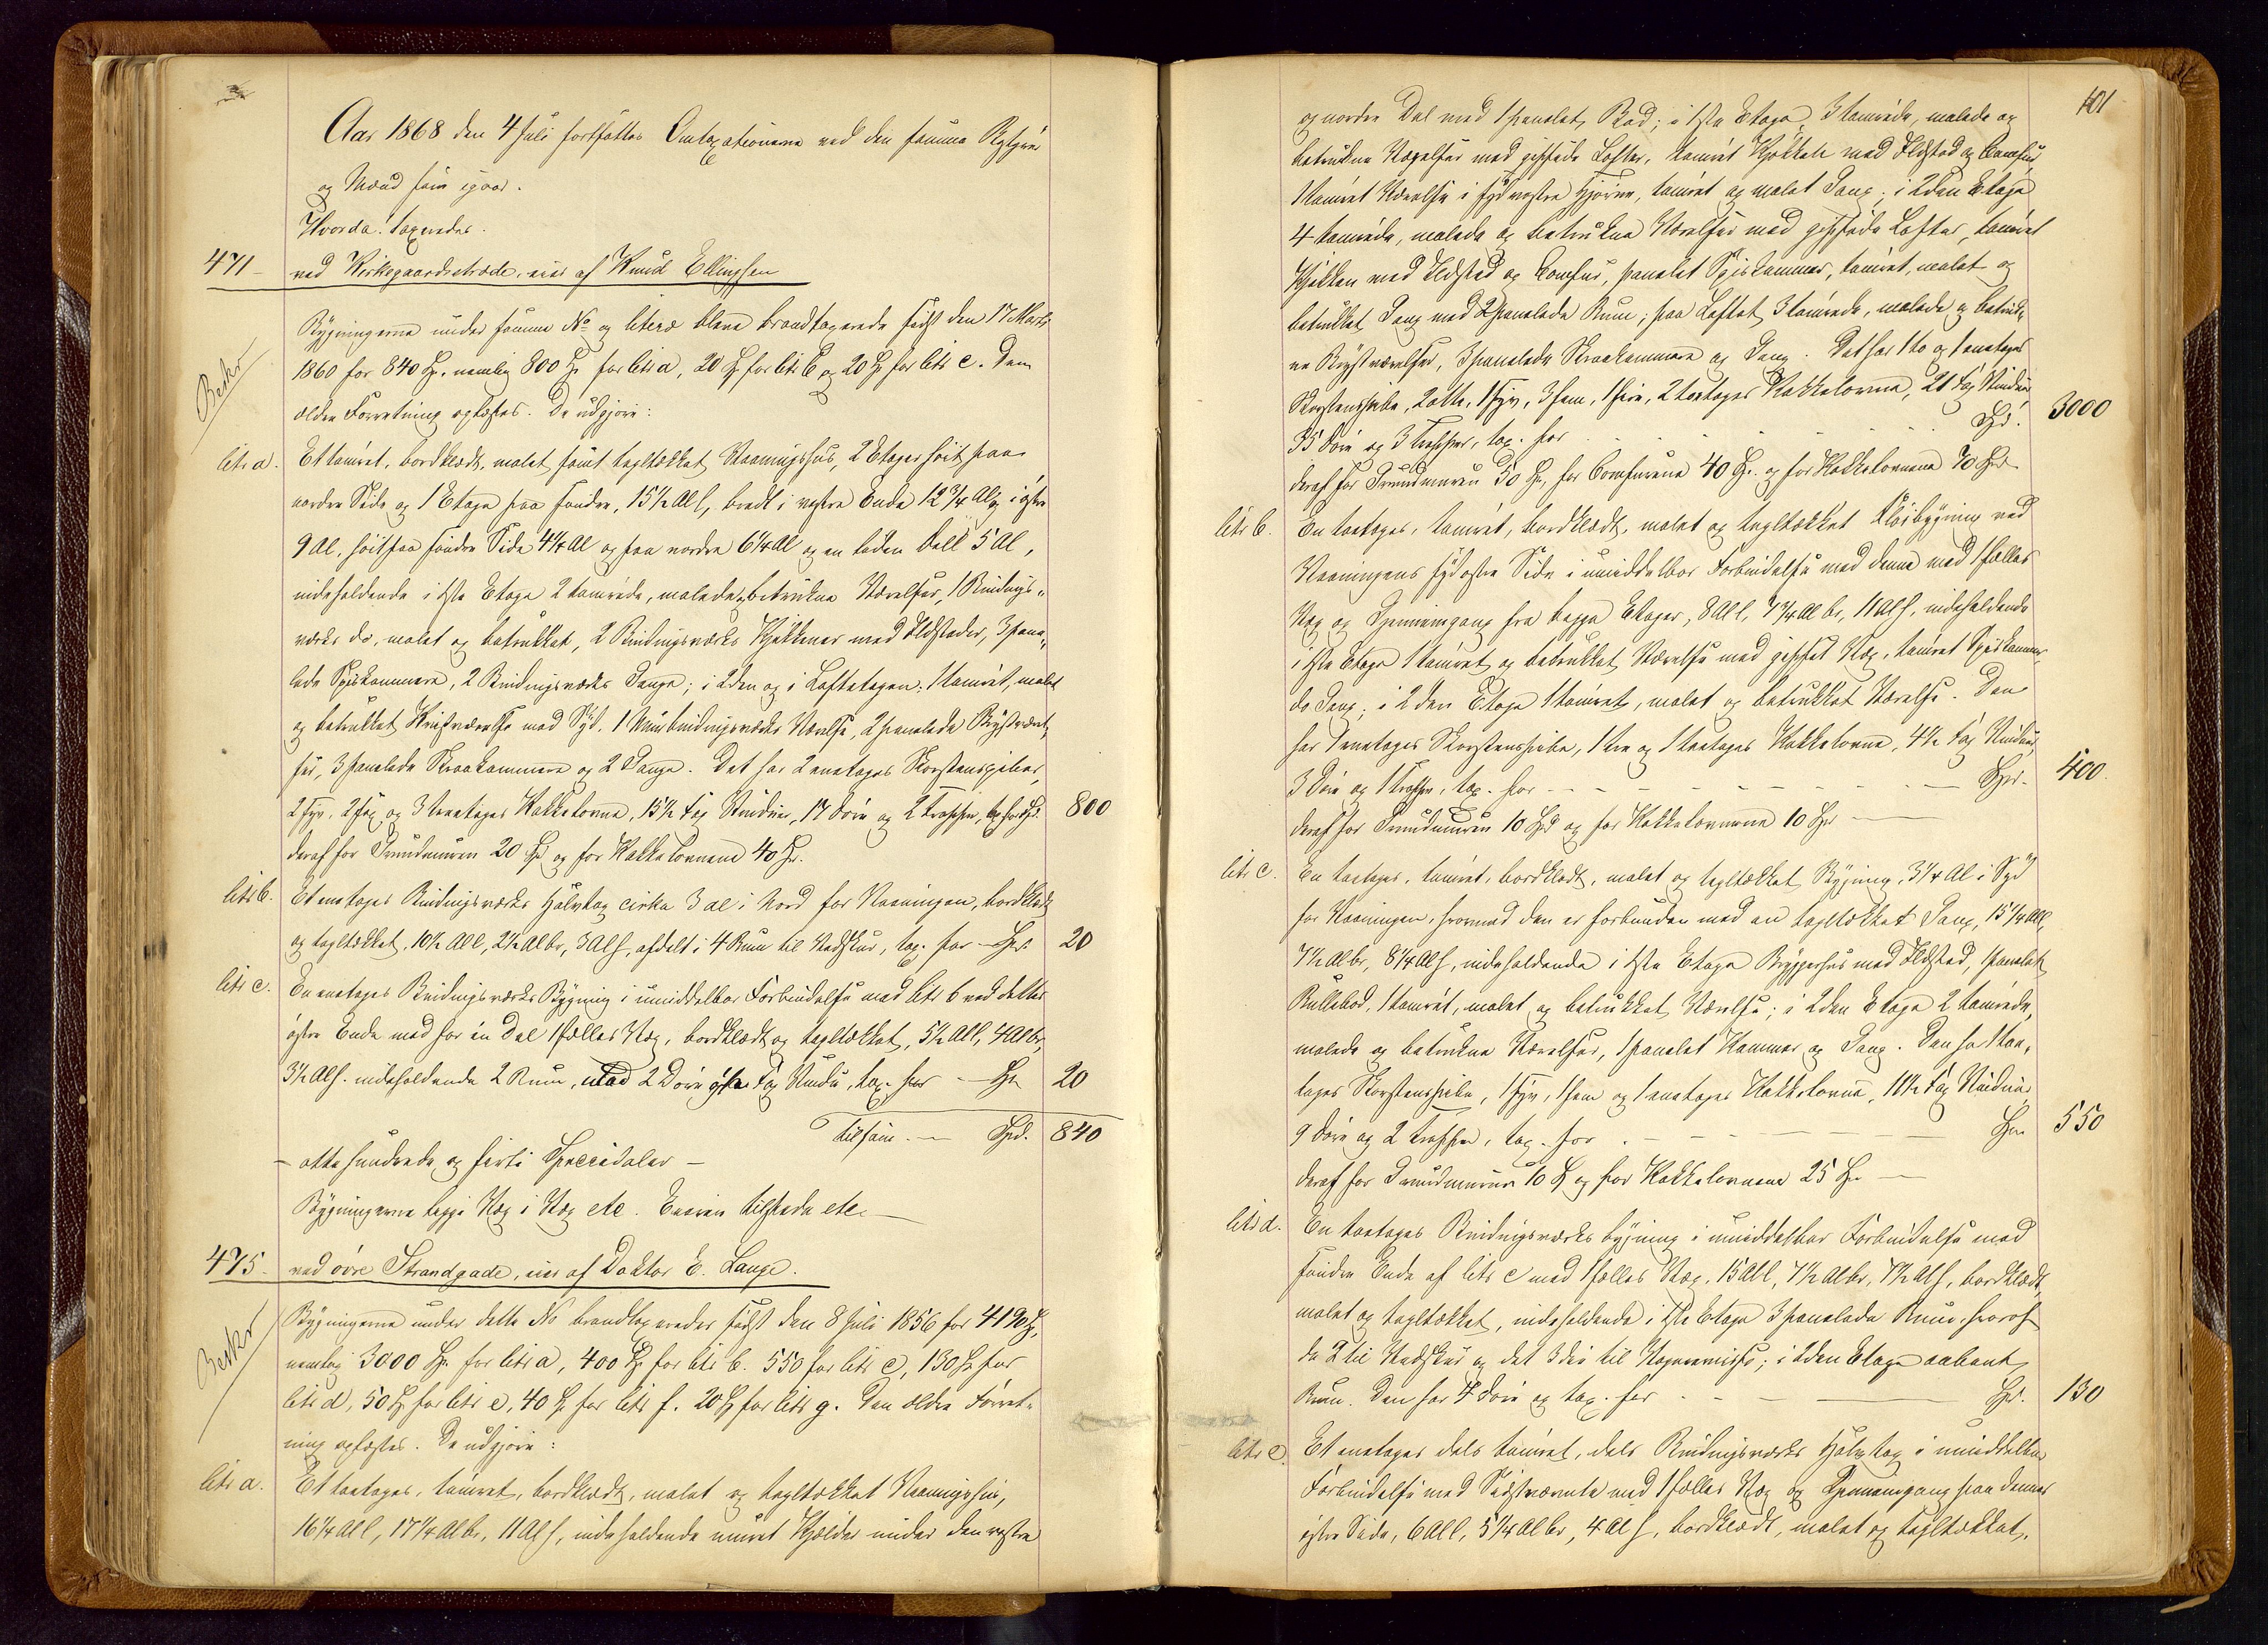 Aar 1868 den 4 Juli fortsattes Omtaxationerne ved den samme Retspræ
og Mænd som igaar.
Hvorda taxeredes.
471 ved Kirkegaardsstræde, eies af Knud Ellingsen
Bygningerne under samme No og literæ bleve brandtaxerede sidst den 17 Marts
1860 for 840 Spd. nemlig 800 Spd for litr a, 20 Spd for litr b og 20 Spd for litr c. Den
ældre Forretning oplæstes. De udgjøre:
Beskr
litr a. Et tømret, bordklædt, malet samt tagltækket Vaaningshus, 2 Etager høit paa
nordre Side og 1 Etage paa søndre, 15½ Al l, bredt i vestre Ende 12¾ Al og i østre
9 Al, høit paa søndre Side 4¼ Al og paa nordre 6¼ Al og en liden Dell 5 Al,
indeholdende i 1ste Etage 2 tømrede, malede og betrukne Værelser, 1 Bindings-
værks do, malet og betrukket, 2 Bindingsværks Kjøkkener med Ildsteder, 3 pane-
lede Spiskammere, 2 Bindingsværks Gange; i 2den og i Loftetagen: 1 tømret, malet
og betrukket Kvistværelse mod Syd, 1 Bindingsværks Værelse, 2 panelede Brystværel-
ser, 3 panelede Skraakammere og 2 Gange. Det har 2 enetages Skorstenspiber,
2 Fyr, 2 sex og 3 treetages Kakkelovne, 15½ Fag Vinduer, 17 Døre og 2 Trapper, tax for Spd. 800
deraf for Grundmuren 20 Spd og for Kakkelovnene 40 Spd.
litr b. Et enetages Bindingsværks Halvtag cirka 3 al i Nord for Vaaningen, bordklædt
og tagltækket, 10½ Al l, 2½ Al br, 3 Al h, afdelt i 4 Rum til Vedskur, tax. for — Spd. 20
litr c. En enetages Bindingsværks Bygning i umiddelbar Forbindelse med litr b ved dettes
østre Ende med for en Del 1 fælles Væg, bordklædt og tagltækket, 5½ Al l, 4 Al br,
3½ Al h. indeholdende 2 Rum, med 2 Døre og ½ Fag Vindu, tax. for — Spd 20
tilsam. — Spd. 840
— otte hundrede og førti Speciedaler —
Bygningerne ligge Væg i Væg etc. Eieren tilstede etc —
475. ved øvre Strandgade, eies af Doktor E. Lange.
Beskr
Bygningerne under dette No brandtaxeredes sidst den 8 Juli 1856 for 4190 Spd,
nemlig 3000 Spd. for litr a, 400 Spd for litr b. 550 for litr c, 130 Spd for
litr d, 50 Spd for litr e, 40 Spd for litr f. 20 Spd for litr g. Den ældre Forret-
ning oplæstes. De udgjøre:
litr a. Et toetages, tømret, bordklædt, malet og tagltækket Vaaningshus,
16¼ Al l, 17¼ Al br, 11 Al h, indeholdende muret Kjelder under den vestre
101
og nordre Del med 1 panelet Bod; i 1ste Etage 3 tømrede, malede og
betrukne Værelser med gipsede Lofter, tømret Kjøkken med Ildsted og Comfur,
1 tømret Værelse i sydvestre Hjørne, tømret og malet Gang; i 2den Etage
4 tømrede, malede og betrukne Værelser med gipsede Lofter, tømret
Kjøkken med Ildsted og Comfur, panelet Spiskammer, tømret, malet og
betrukket Gang med 2 panelede Rum; paa Loftet 3 tømrede, malede og betruk-
ne Brystværelser, 3 panelede Skraakammere og Gang. Det har 1 to og 1 enetages
Skorstenspibe, 2 otte, 1 Fyr, 3 fem, 1 fire, 2 toetages Kakkelovne, 21 Fag Vinduer,
35 Døre og 3 Trapper, tax. for Spd. 3000
deraf for Grundmuren 50 Spd, for Comfurene 40 Spd. og for Kakkelovnene 70 Spd
litr b. En toetages, tømret, bordklædt, malet og tagltækket Fløibygning ved
Vaaningens sydøstre Side i umiddelbar Forbindelse med denne med 1 fælles
Væg og Gjennemgang fra begge Etager, 8 Al l, 7¾ Al br, 11 Al h, indeholdende
i 1ste Etage 1 tømret og betrukket Værelse med gipset Væg, tømret Spiskammer,
do Gang; i 2den Etage 1 tømret, malet og betrukket Værelse. Den
har 1 enetages Skorstenspibe, 1 tre og 1 toetages Kakkelovne, 4½ Fag Vinduer,
3 Døre og 1 Trappe, tax. for — Spd. 400.
deraf for Grundmuren 10 Spd og for Kakkelovnene 10 Spd —
litr c. En toetages, tømret, bordklædt, malet og tagltækket Bygning, 3¼ Al i Syd
for Vaaningen, hvormed den er forbunden med en tagltækket Gang, 15¼ Al l,
7½ Al br, 8¼ Al h, indeholdende i 1ste Etage Bryggerhus med Ildsted, 1 panelet
Rullebod, 1 tømret, malet og betrukket Værelse; i 2den Etage 2 tømrede,
malede og betrukne Værelser, 1 panelet Kammer og Gang. Den har 1 toe-
tages Skorstenspibe, 1 Fyr, 1 fem og 1 enetages Kakkelovne, 11½ Fag Vinduer,
9 Døre og 2 Trapper, tax. for — Spd 550
deraf for Grundmuren 10 Spd og for Kakkelovnene 25 Spd —
litr d. En toetages Bindingsværks bygning i umiddelbar Forbindelse med
søndre Ende af litr c med 1 fælles Væg, 15 Al l, 7½ Al br, 7½ Al h, bordklædt,
malet og tagltækket, indeholdende i 1ste Etage 3 panelede Rum, hvoraf
de 2 til Vedskur og det 3die til Vognremisse; i 2den Etage aabent
Rum. Den har 4 Døre og tax. for — Spd. 130
litr e. Et enetages dels tømret, dels Bindingsværks Halvtag i umiddelbar
Forbindelse med Sidstnævnte med 1 fælles Væg og Gjennemgang paa dennes
østre Side, 6 Al l, 5¼ Al br, 4 Al h, bordklædt, malet og tagltækket,